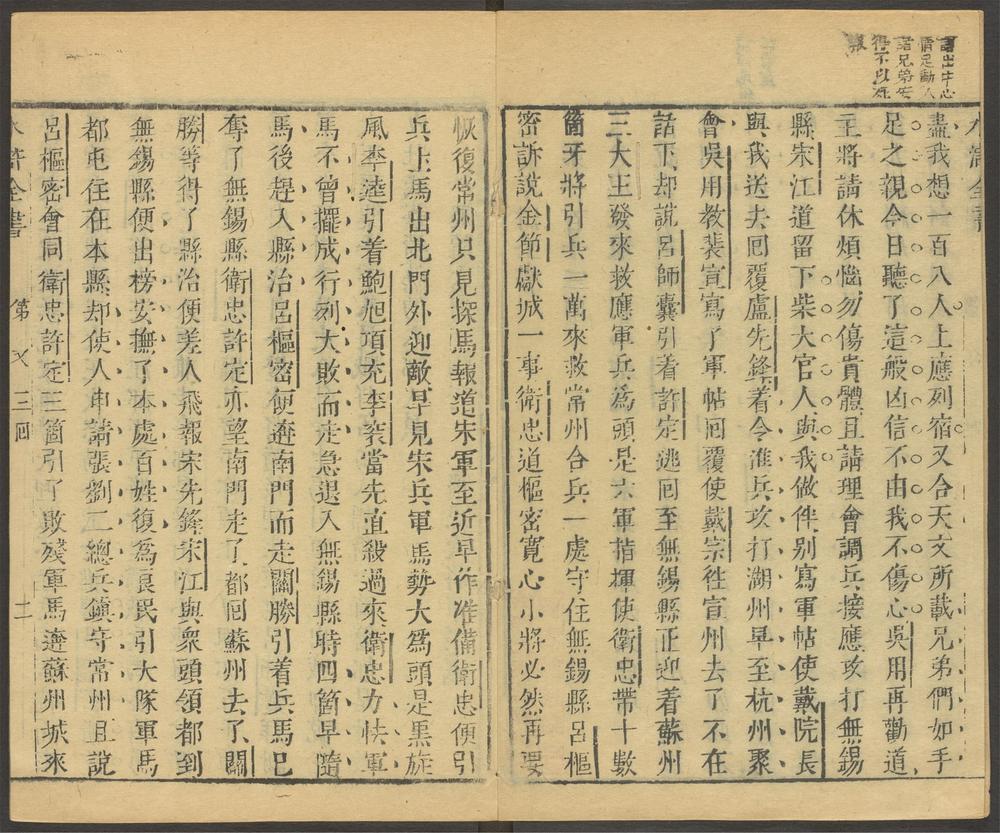 語出中心
情足動人
諸兄弟安
得不以死
報
水滸全書
盡我想一百八人上應列宿又合天文所載兄弟們如手
足之親今日聽了這般凶信不由我不傷心吳用再勸道
主將請休煩惱勿傷貴體且請理會調兵接應攻打無錫
縣宋江道留下柴大官人與我做伴別寫軍帖使戴院長
與我送去回覆盧先鋒着令進兵攻打湖州早至杭州聚
會吳用教裴宣寫了軍帖回覆使戴宗徃宣州去了不在
話下却說呂師囊引着許定逃回至無錫縣正迎着蘇州
三大王發來救應軍兵為頭是六軍指揮使衛忠帶十數
箇牙將引兵一萬來救常州合兵一處守住無錫縣呂樞
密訴說金節獻城一事衛忠道樞密寬心小將必然再要
恢復常州只見探馬報道宋軍至近早作准備衛忠便引
兵上馬出北門外迎敵早見宋兵軍馬勢大為頭是黑旋
風李逵引着鮑旭項充李衮當先直殺過來衛忠力怯軍
馬不曾擺成行列大敗而走急退入無錫縣時四箇早隨
馬後趕入縣治呂樞密便遶南門而走關勝引着兵馬已
奪了無錫縣衛忠許定亦望南門走了都回蘇州去了關
勝等得了縣治便差人飛報宋先鋒宋江與衆頭領都到
無錫縣便出榜安撫了本處百姓復為良民引大隊軍馬
都屯住在本縣却使人申請張劉二總兵鎮守常州且說
呂樞密會同衛忠許定三箇引了敗殘軍馬遶蘇州城來
水滸全書 第 三回 二